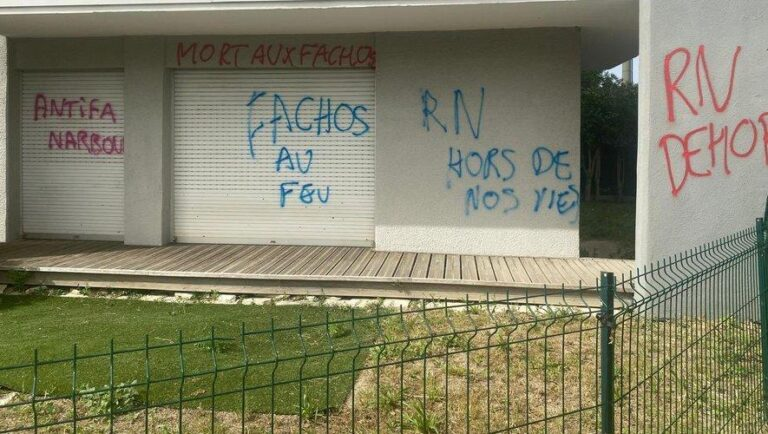 MORT AUX FACHOS
ANTIFA
NARBOU
FACHOS
AU
FEU
RN
HORS DE
NOS VIES
RN
DEHOR